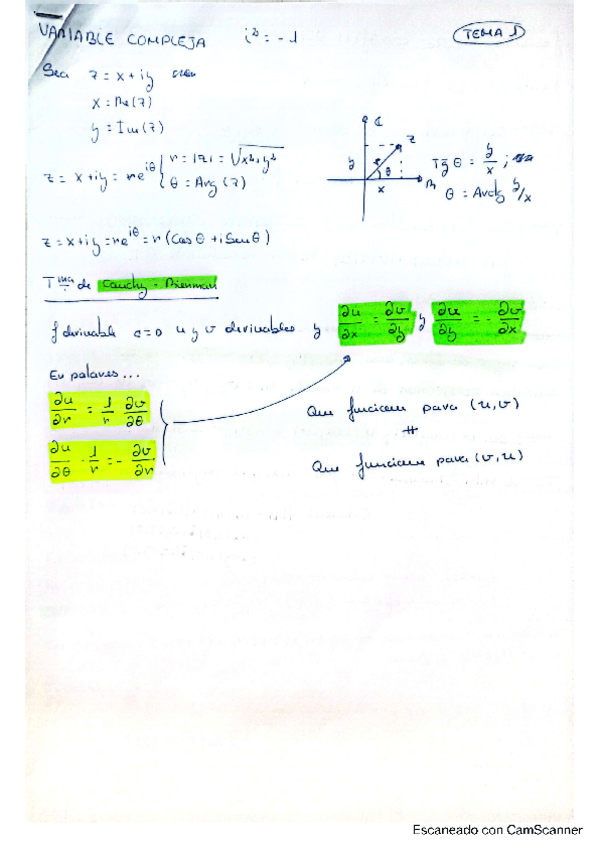 VARIABLE COMPLEJA i² = -1 TEMA 1
Sea z = x + iy
x = Re(z)
y = Im(z)
z = x + iy = re^{iθ} { r = |z| = √x²+y²
θ = Arg(z)
C
z
y r θ
x R
Tg θ = y/x ;
θ = Arctg y/x
z = x + iy = re^{iθ} = r (Cos θ + i Sen θ)
Tma de Cauchy - Riemman
f derivable <=> u y v derivables y ∂u/∂x = ∂v/∂y y ∂u/∂y = - ∂v/∂x
En polares...
∂u/∂r = 1/r ∂v/∂θ
∂u/∂θ · 1/r = - ∂v/∂r
Que funcionen para (u,v)
#
Que funcionen para (v,u)
Escaneado con CamScanner